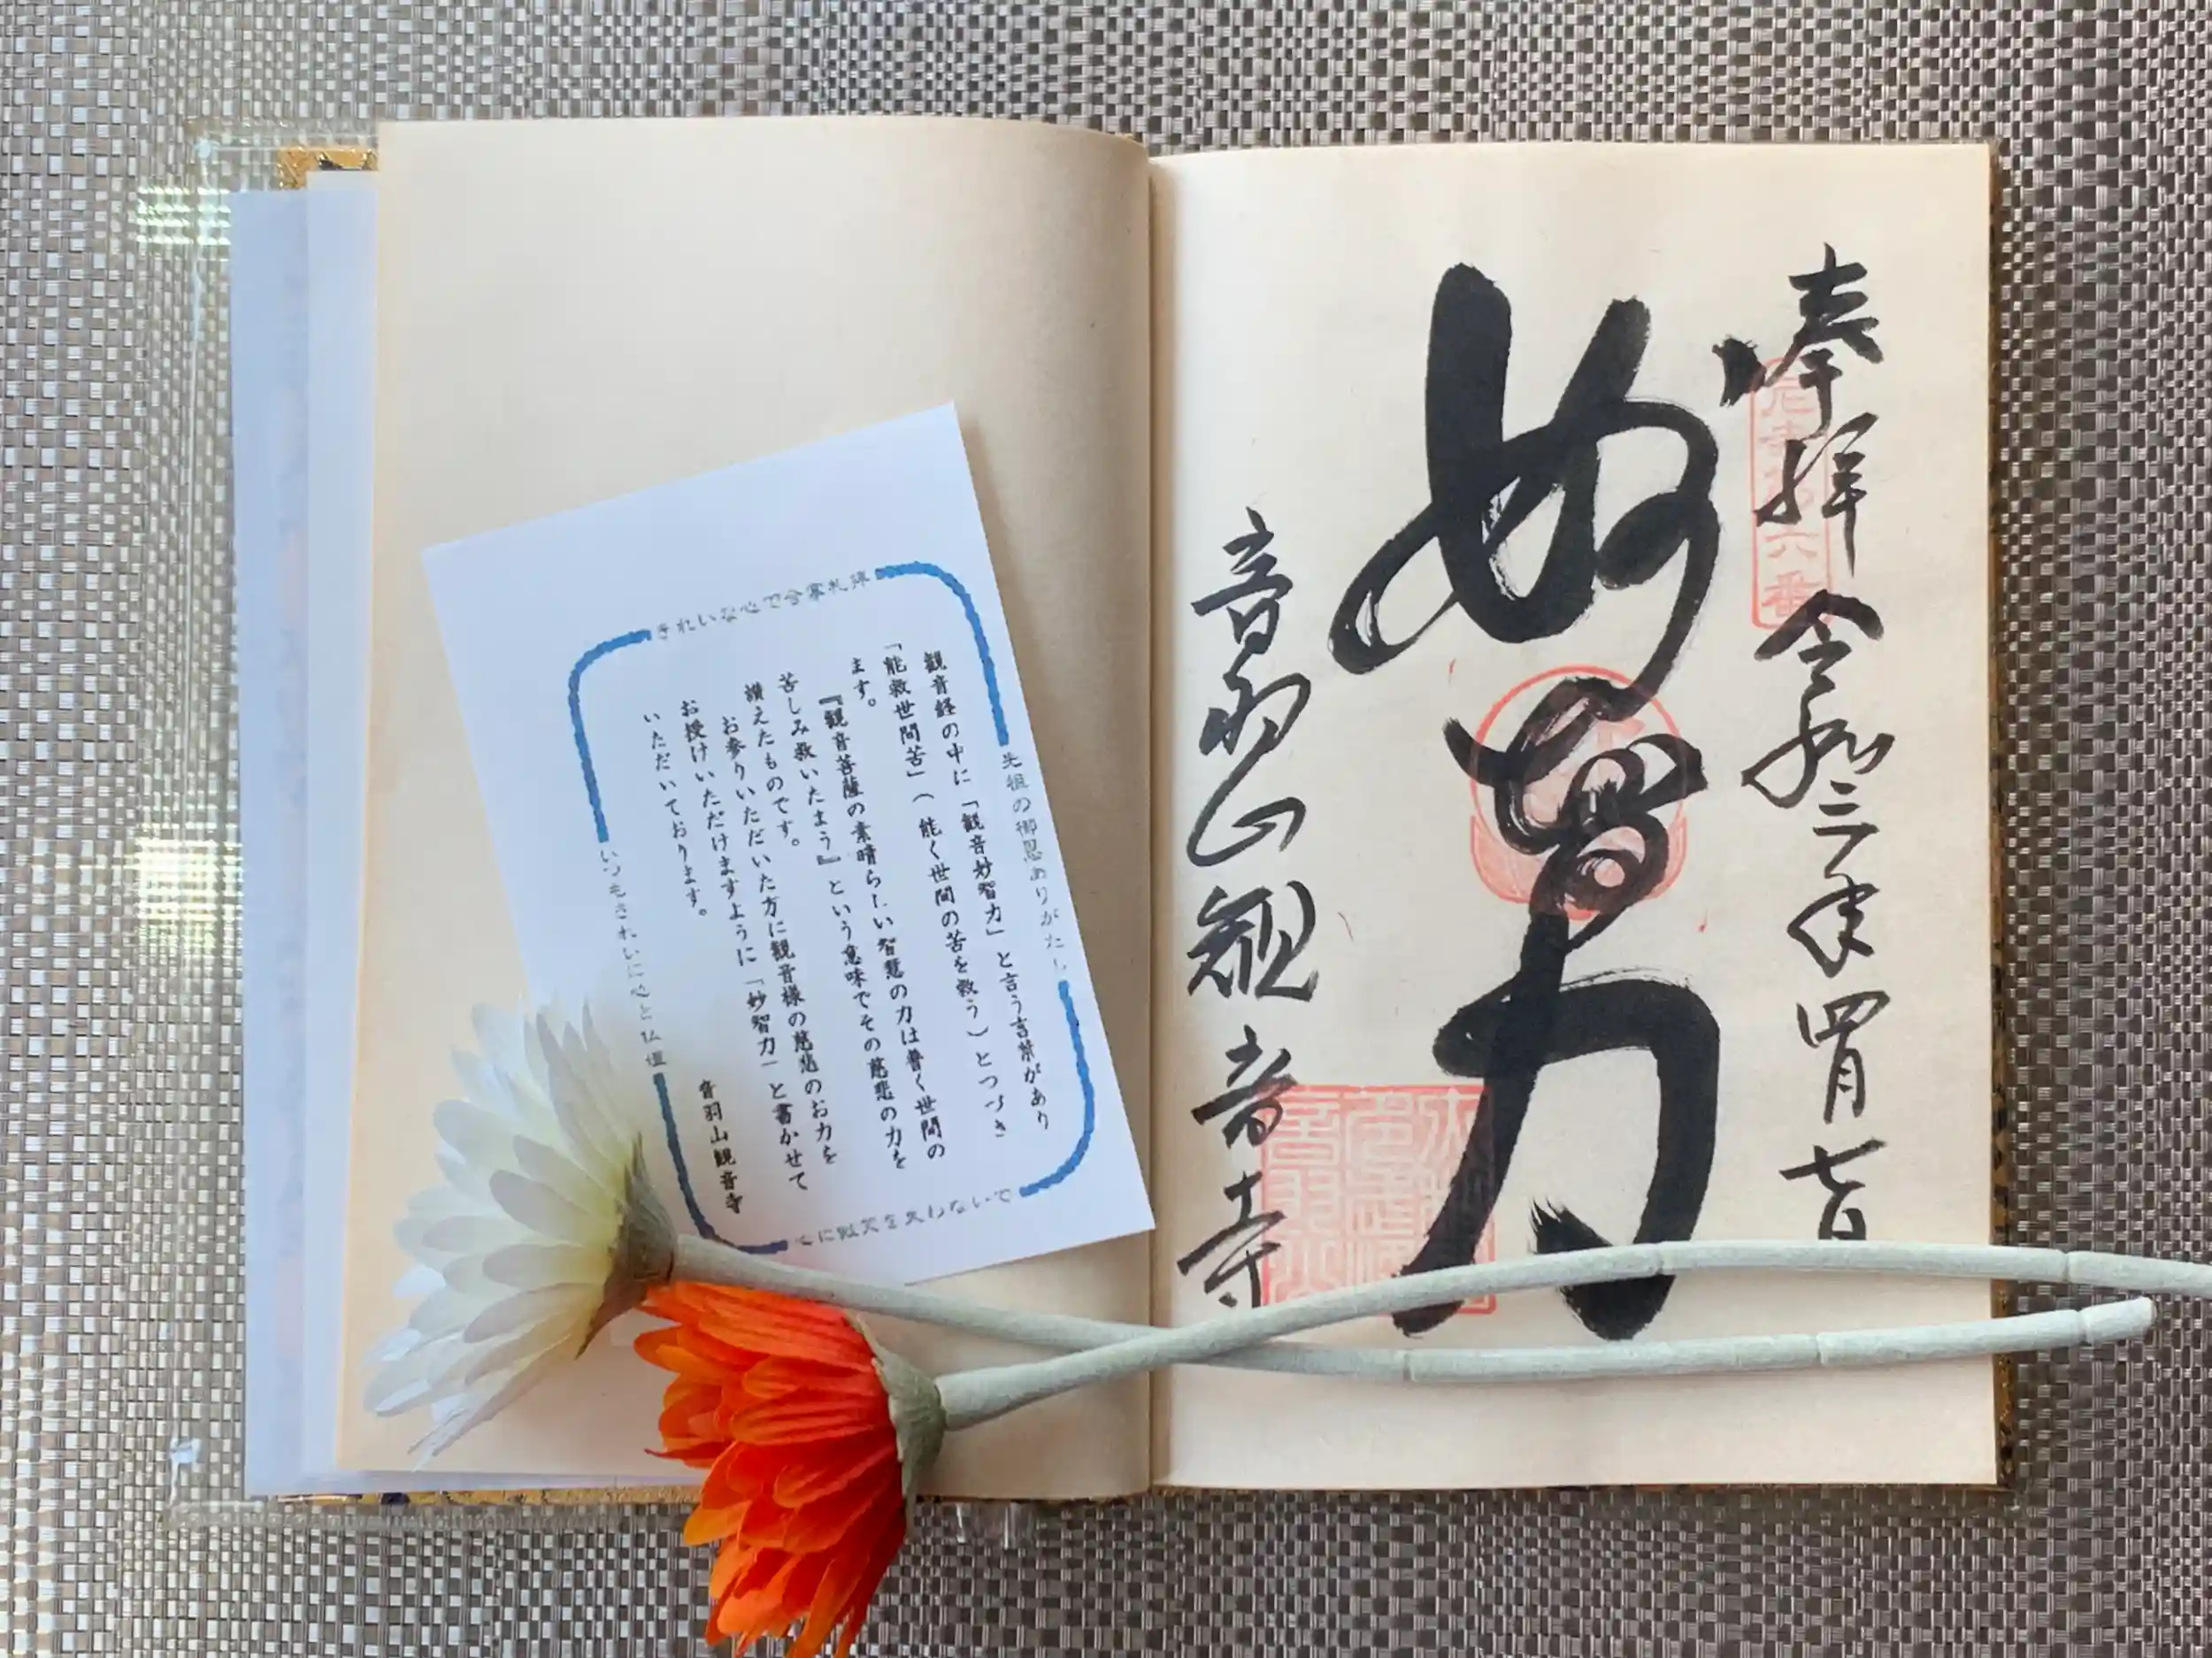 奉拝 令和三年四月七日
妙智力
音羽山観音寺
六番
きれいな心で合掌礼拝
先祖の御恩ありがたし
観音経の中に「観音妙智力」と言う言葉があり
「能救世間苦」（能く世間の苦を救う）とつづき
ます。
『観音菩薩の素晴らしい智慧の力は普く世間の
苦しみ救いたまう』という意味でその慈悲の力を
讃えたものです。
お参りいただいた方に観音様の慈悲のお力を
お授けいただけますように「妙智力」と書かせて
いただいております。
音羽山観音寺
いつもきれいに心と仏壇
心に微笑を失わないで